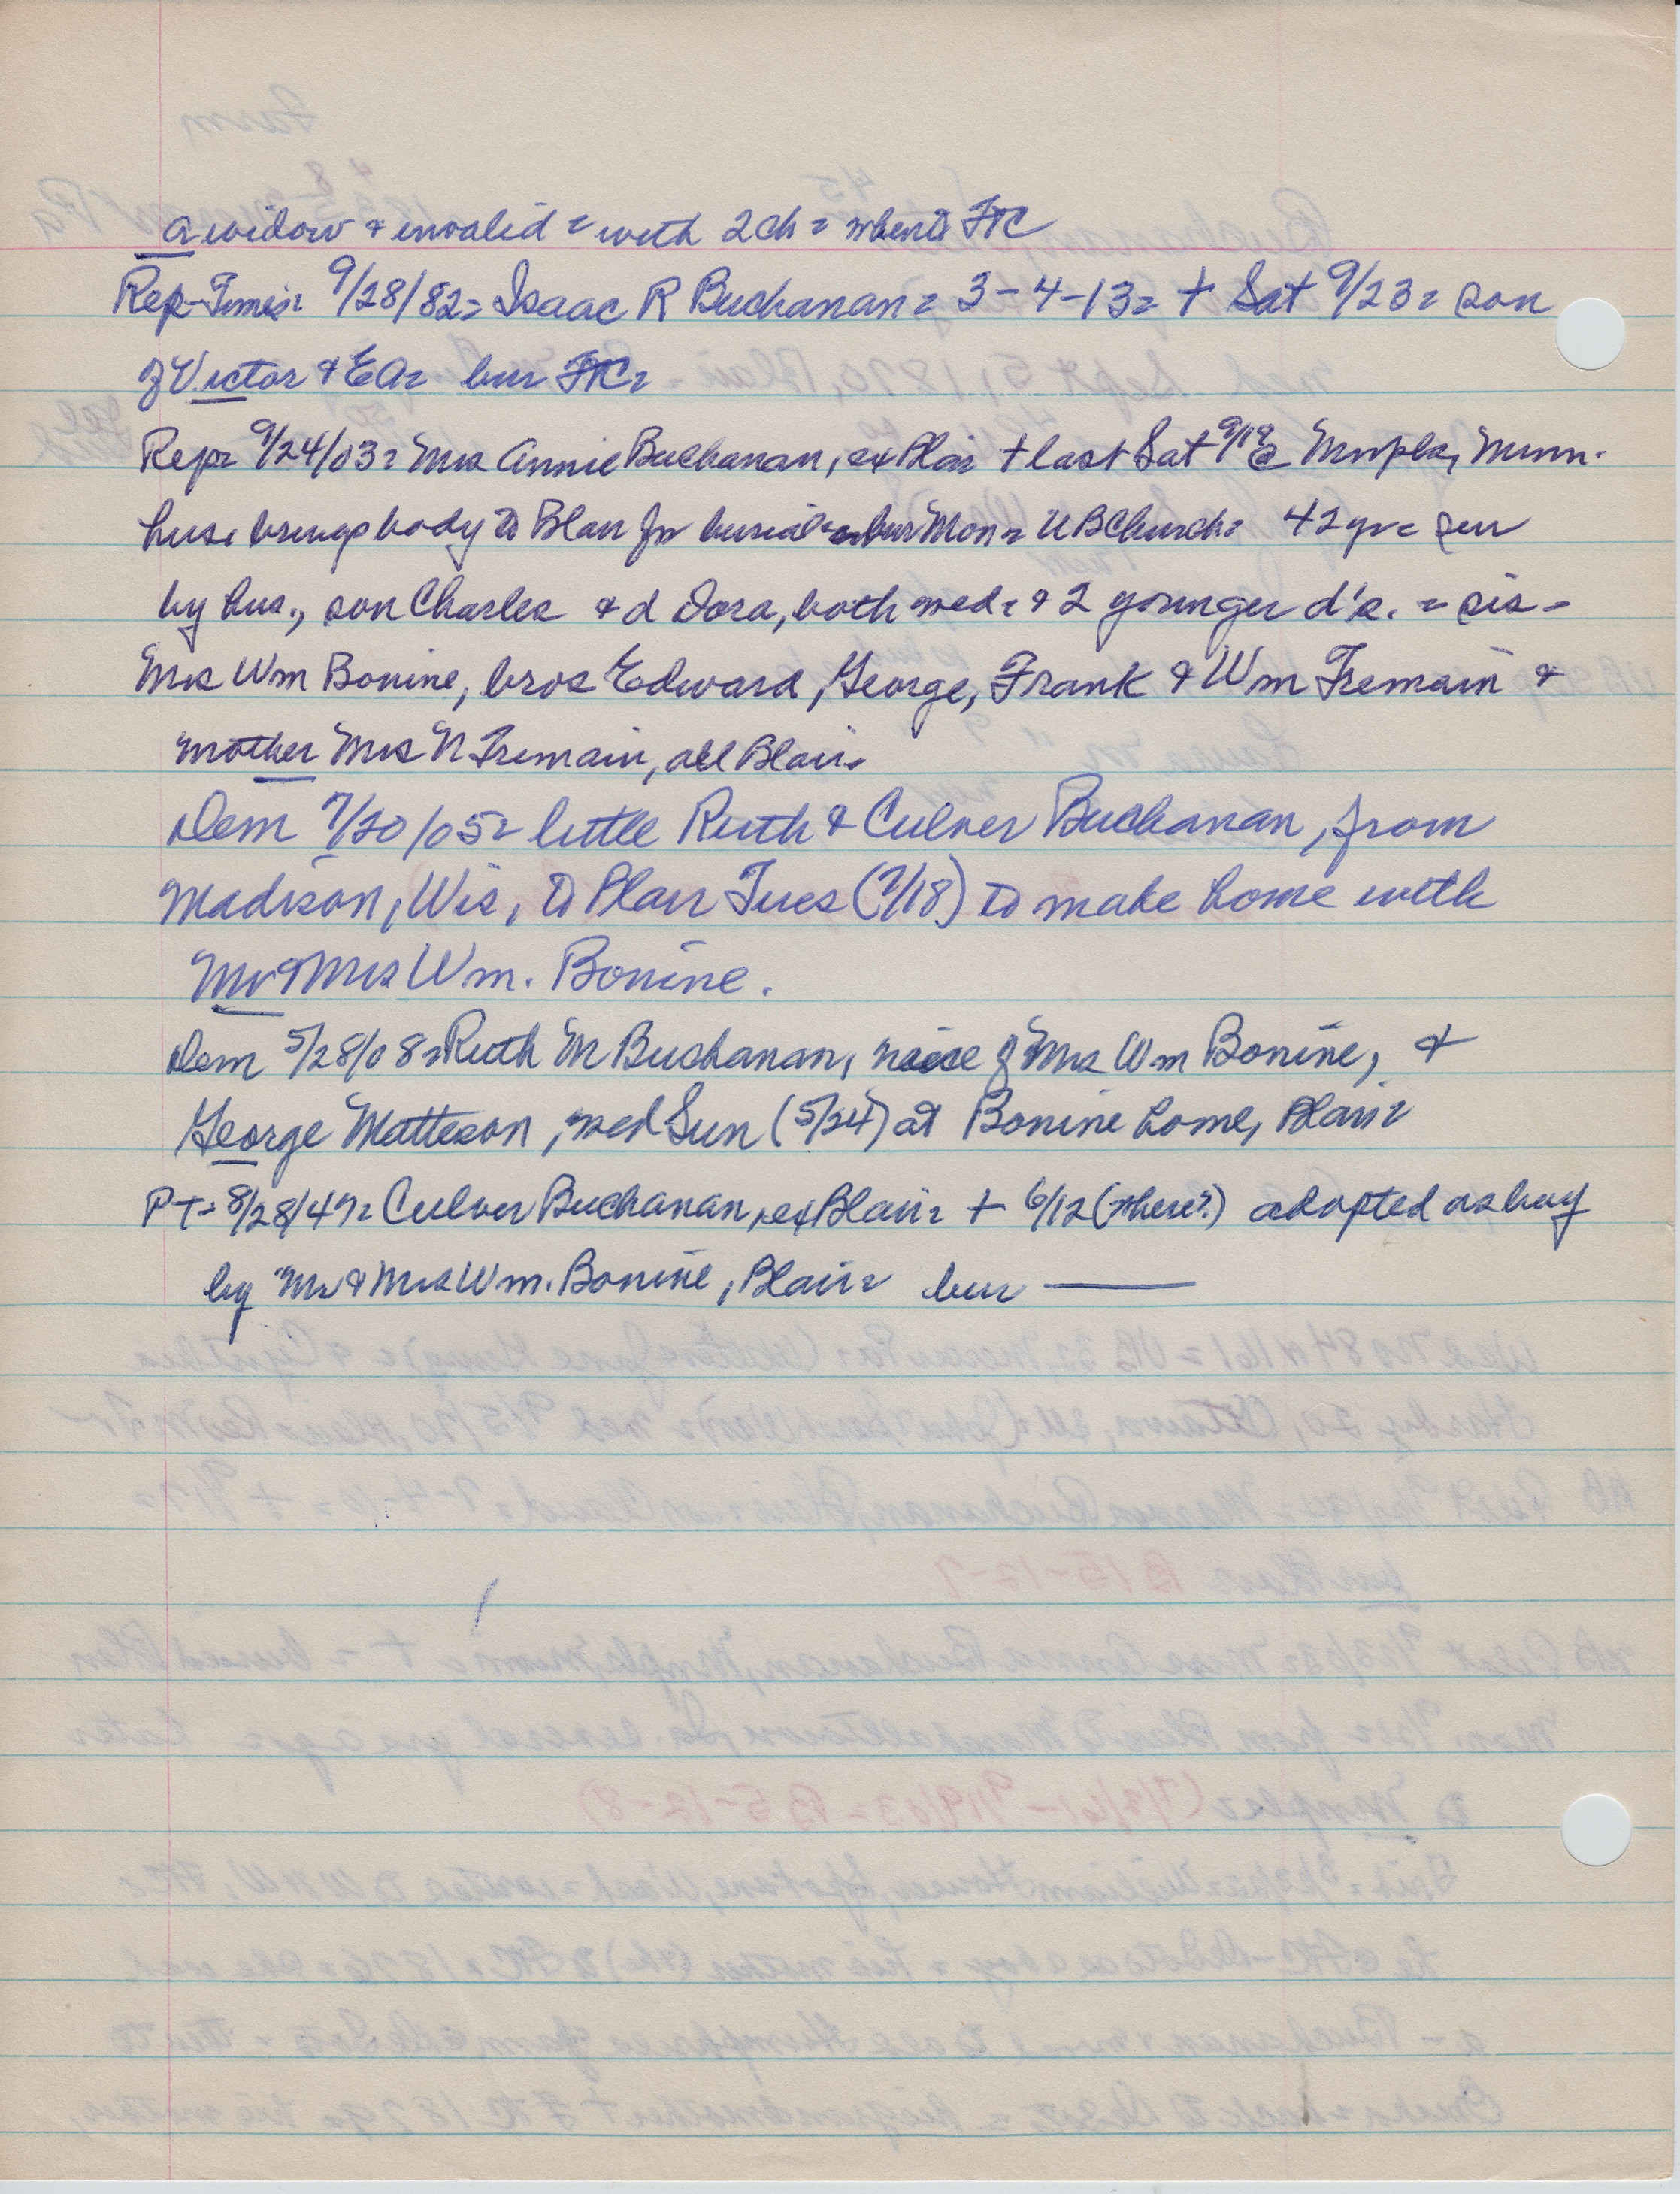 a widow & invalid = with 2 ch = when to FtC
Rep-Times = 9/28/82 = Isaac R Buchanan = 3-4-13 = + Sat 9/23 = son
of Victor & EA = bur FtC =
Rep = 9/24/03 = Mrs Annie Buchanan, ex Blair + last Sat 9/19 @ Mnpls, Minn.
hus. brings body to Blair for burial = bur Mon = UB Church = 42 yr = sur
by hus., son Charles & d Dora, both med = & 2 younger d's. = sis -
Mrs Wm Bonine, bros Edward, George, Frank & Wm Tremain &
mother Mrs N Tremain, all Blair.
Dem 7/20/05 = little Ruth & Culver Buchanan, from
Madison, Wis, to Blair Tues (7/18) to make home with
Mr & Mrs Wm. Bonine.
Dem 5/28/08 = Ruth M Buchanan, niece of Mrs Wm Bonine, &
George Matteson, med Sun (5/24) at Bonine home, Blair =
PT = 8/28/47 = Culver Buchanan, ex Blair = + 6/12 (where?) adopted as boy
by Mr & Mrs Wm. Bonine, Blair = bur ———